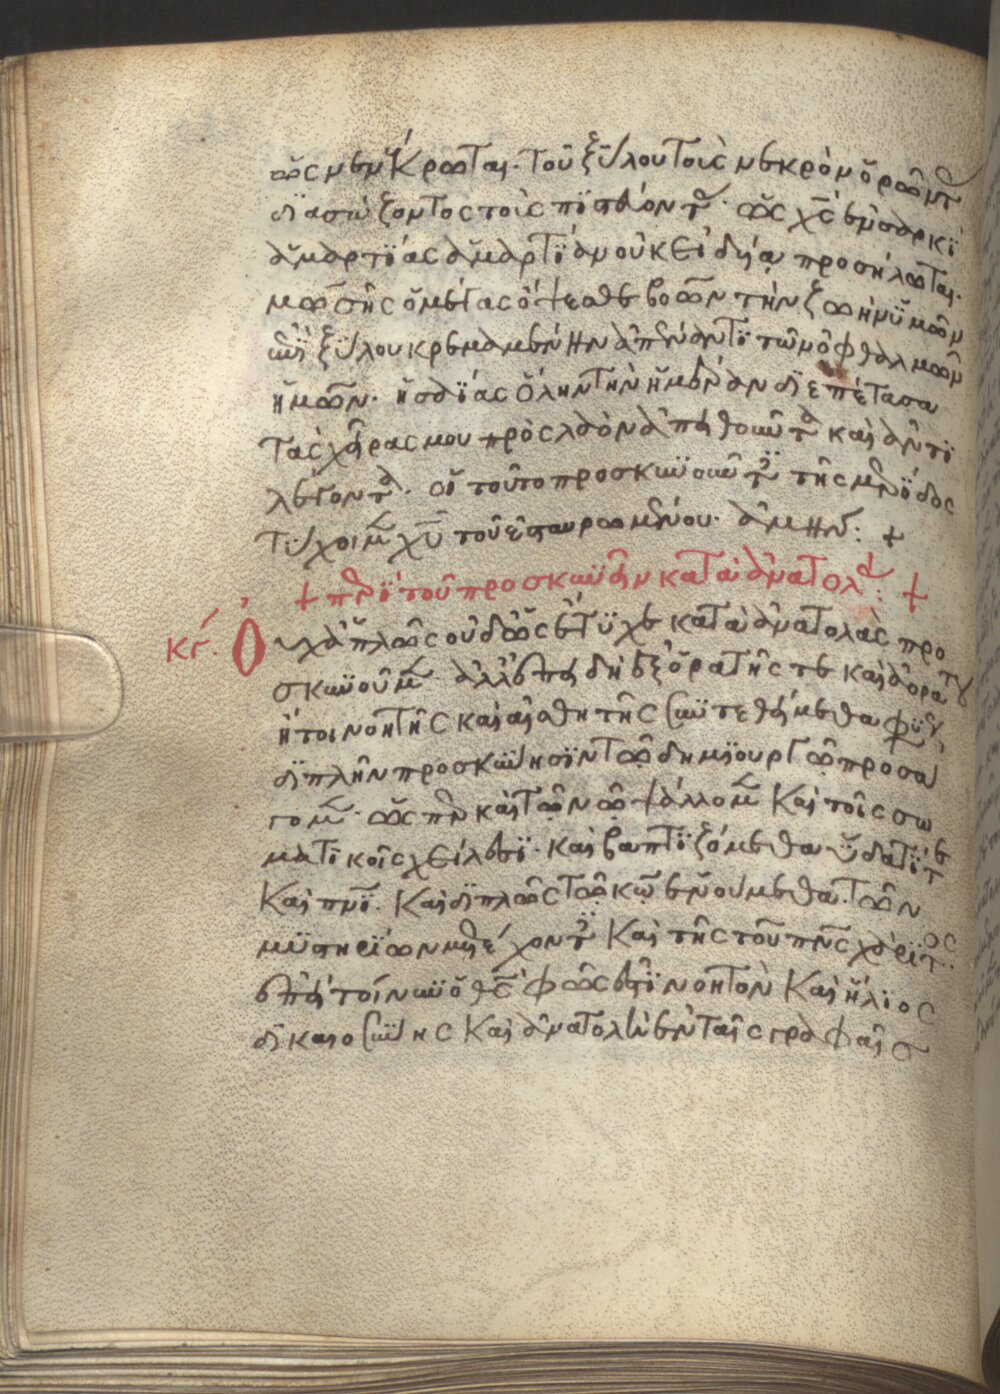 ὡς νενέκρωται· τοῦ ξύλου τοῖς νεκρὸν ὁρῶντ
διασώζοντος τοῖς πιστεύοντ(α)· ὡς χς ἐν σαρκὶ
ἁμαρτίας ἁμαρτίαν οὐκ εἰδυία προσήλωται·
μωσῆς ὁ μέγας ὄψεσθε βοῶν τὴν ζωὴν ὑμῶν
ἐπὶ ξύλου κρεμαμένην ἀπέναντι τῶν ὀφθαλμῶν
ἡμῶν· ἡσαΐας ὅλην τὴν ἡμέραν διεπέτασα
τὰς χεῖρας μου πρὸς λαὸν ἀπειθοῦντα καὶ ἀντι
λέγοντα· οἱ τοῦτο προσκυνοῦντ(ες) τῆς μερίδος
τύχοιμ(εν) χυ τοῦ ἐσταυρωμένου· ἀμήν: +
+ περὶ τοῦ προσκυνεῖν κατὰ ἀνατολά: +
κγ. Οὐχ ἁπλῶς οὐδ' ὡς ἔτυχε κατὰ ἀνατολὰς προ
σκυνοῦμ(εν)· ἀλλ' ἐπειδὴ ἐξ ὁρατῆς τε καὶ ἀοράτου
ἤτοι νοητῆς καὶ αἰσθητῆς συντεθήμεθα φύσ
διπλὴν προσκύνησιν τῶ δημιουργῶ προσά
γομ(εν)· ὥσπερ καὶ τῶ νῶ ψάλλομ(εν) καὶ τοῖς σω
ματικοῖς χείλεσι· καὶ βαπτιζόμεθα ὕδατί τε
καὶ πνι· καὶ διπλῶς τῶ κω ἑνούμεθα· τῶν
μυστηρίων μετέχοντ(ες) καὶ τῆς τοῦ πνς χάριτος·
ἐπεὶ τοίνυν ὁ θς φῶς ἐστι νοητὸν καὶ ἥλιος
δικαιοσύνης καὶ ἀνατολὴ ἐν ταῖς γραφαῖς